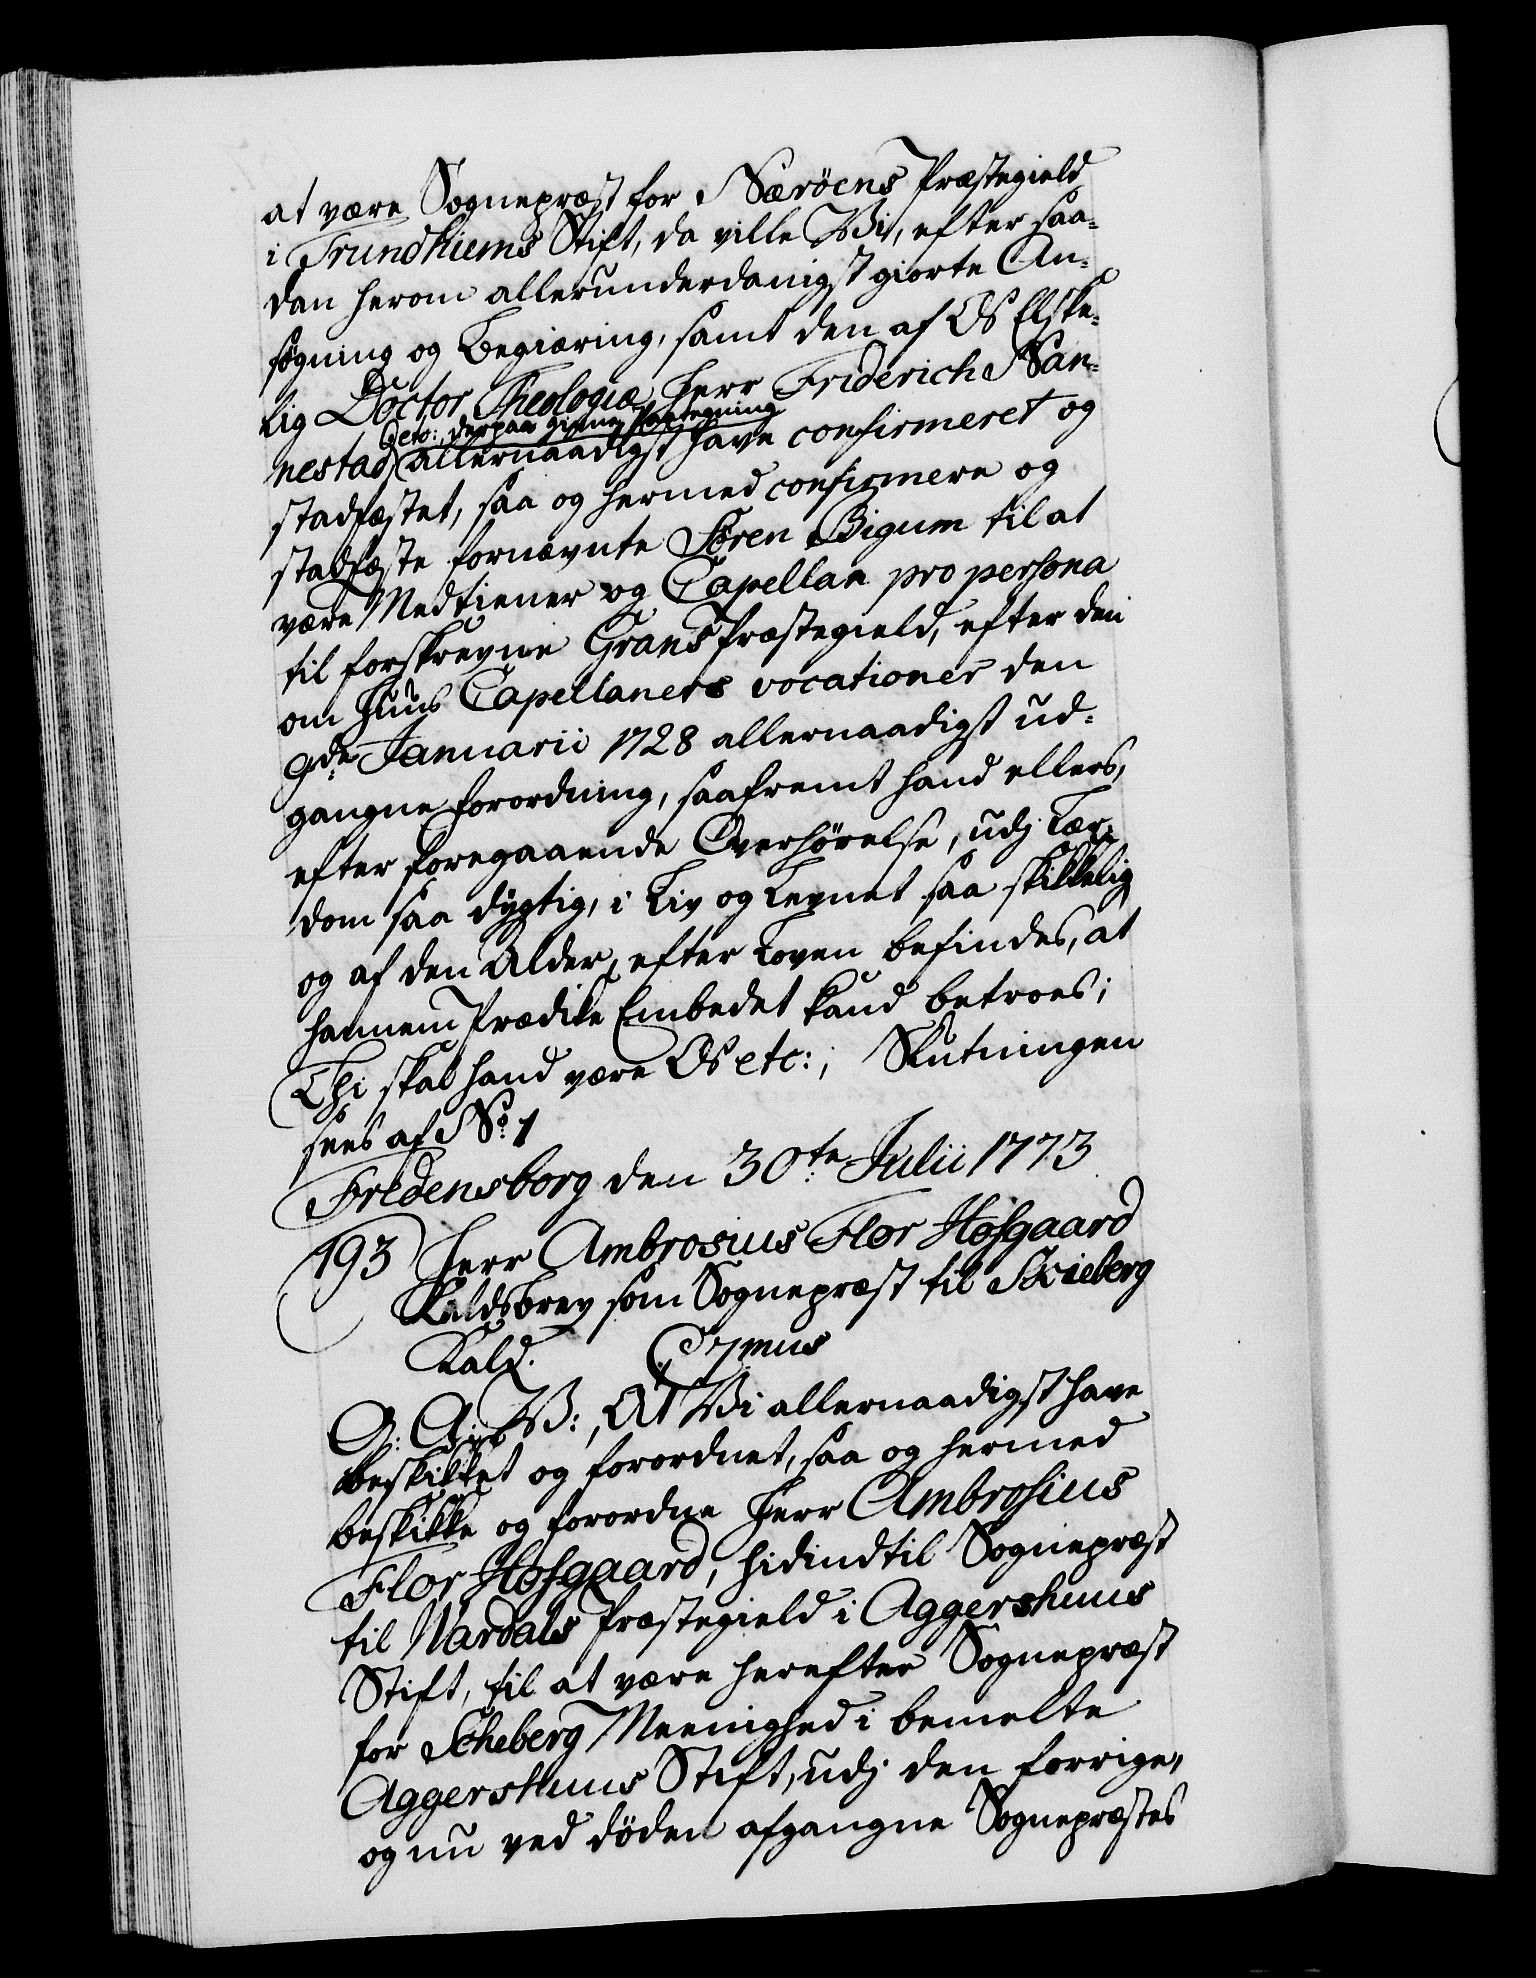 at være Sognepræst for Nærøens Præstegield
i Trundhiems Stift, da ville Wi, efter saa-
dan herom allerunderdanigst giorte An-
søgning og Begiæring, samt den af Os Elske-
lig Doctor Theologiæ Herr Friderich Nan-
etc: derpaa givne Paategning
nestad allernaadigst have confirmeret og
stadfæstet, saa og hermed confirmere og
stadfæste fornævnte Søren Bigum til at
være Medtiener og Capellan pro persona
til forskrevne Grans Præstegield, efter den
om Huus Capellaners vocationer den
9de Januarii 1728 allernaadigst ud-
gangne Forordning, saafremt hand ellers,
efter foregaaende Overhørelse, udj Lær-
dom saa dygtig, i Liv og Levnet saa skikkelig
og af den Alder, efter Loven befindes, at
hannem Prædike Embedet kand betroes;
Thi skal hand være Os etc:; Slutningen
sees af No: 1
Fredensborg den 30te Julii 1773
193 Herr Ambrosius Flor Hofgaard
Kaldsbrev som Sognepræst til Skieberg
Kald.
G: A: V:, At Wi allernaadigst have
beskikket og forordnet, saa og hermed
beskikke og forordne Herr Ambrosius
Flor Hofgaard, hidindtil Sognepræst
til Wardals Præstegield i Aggershuus
Stift, til at være herefter Sognepræst
for Scheberg Meenighed i bemelte
Aggershuus Stift, udj den forrige,
og nu ved døden afgangne Sognepræstes